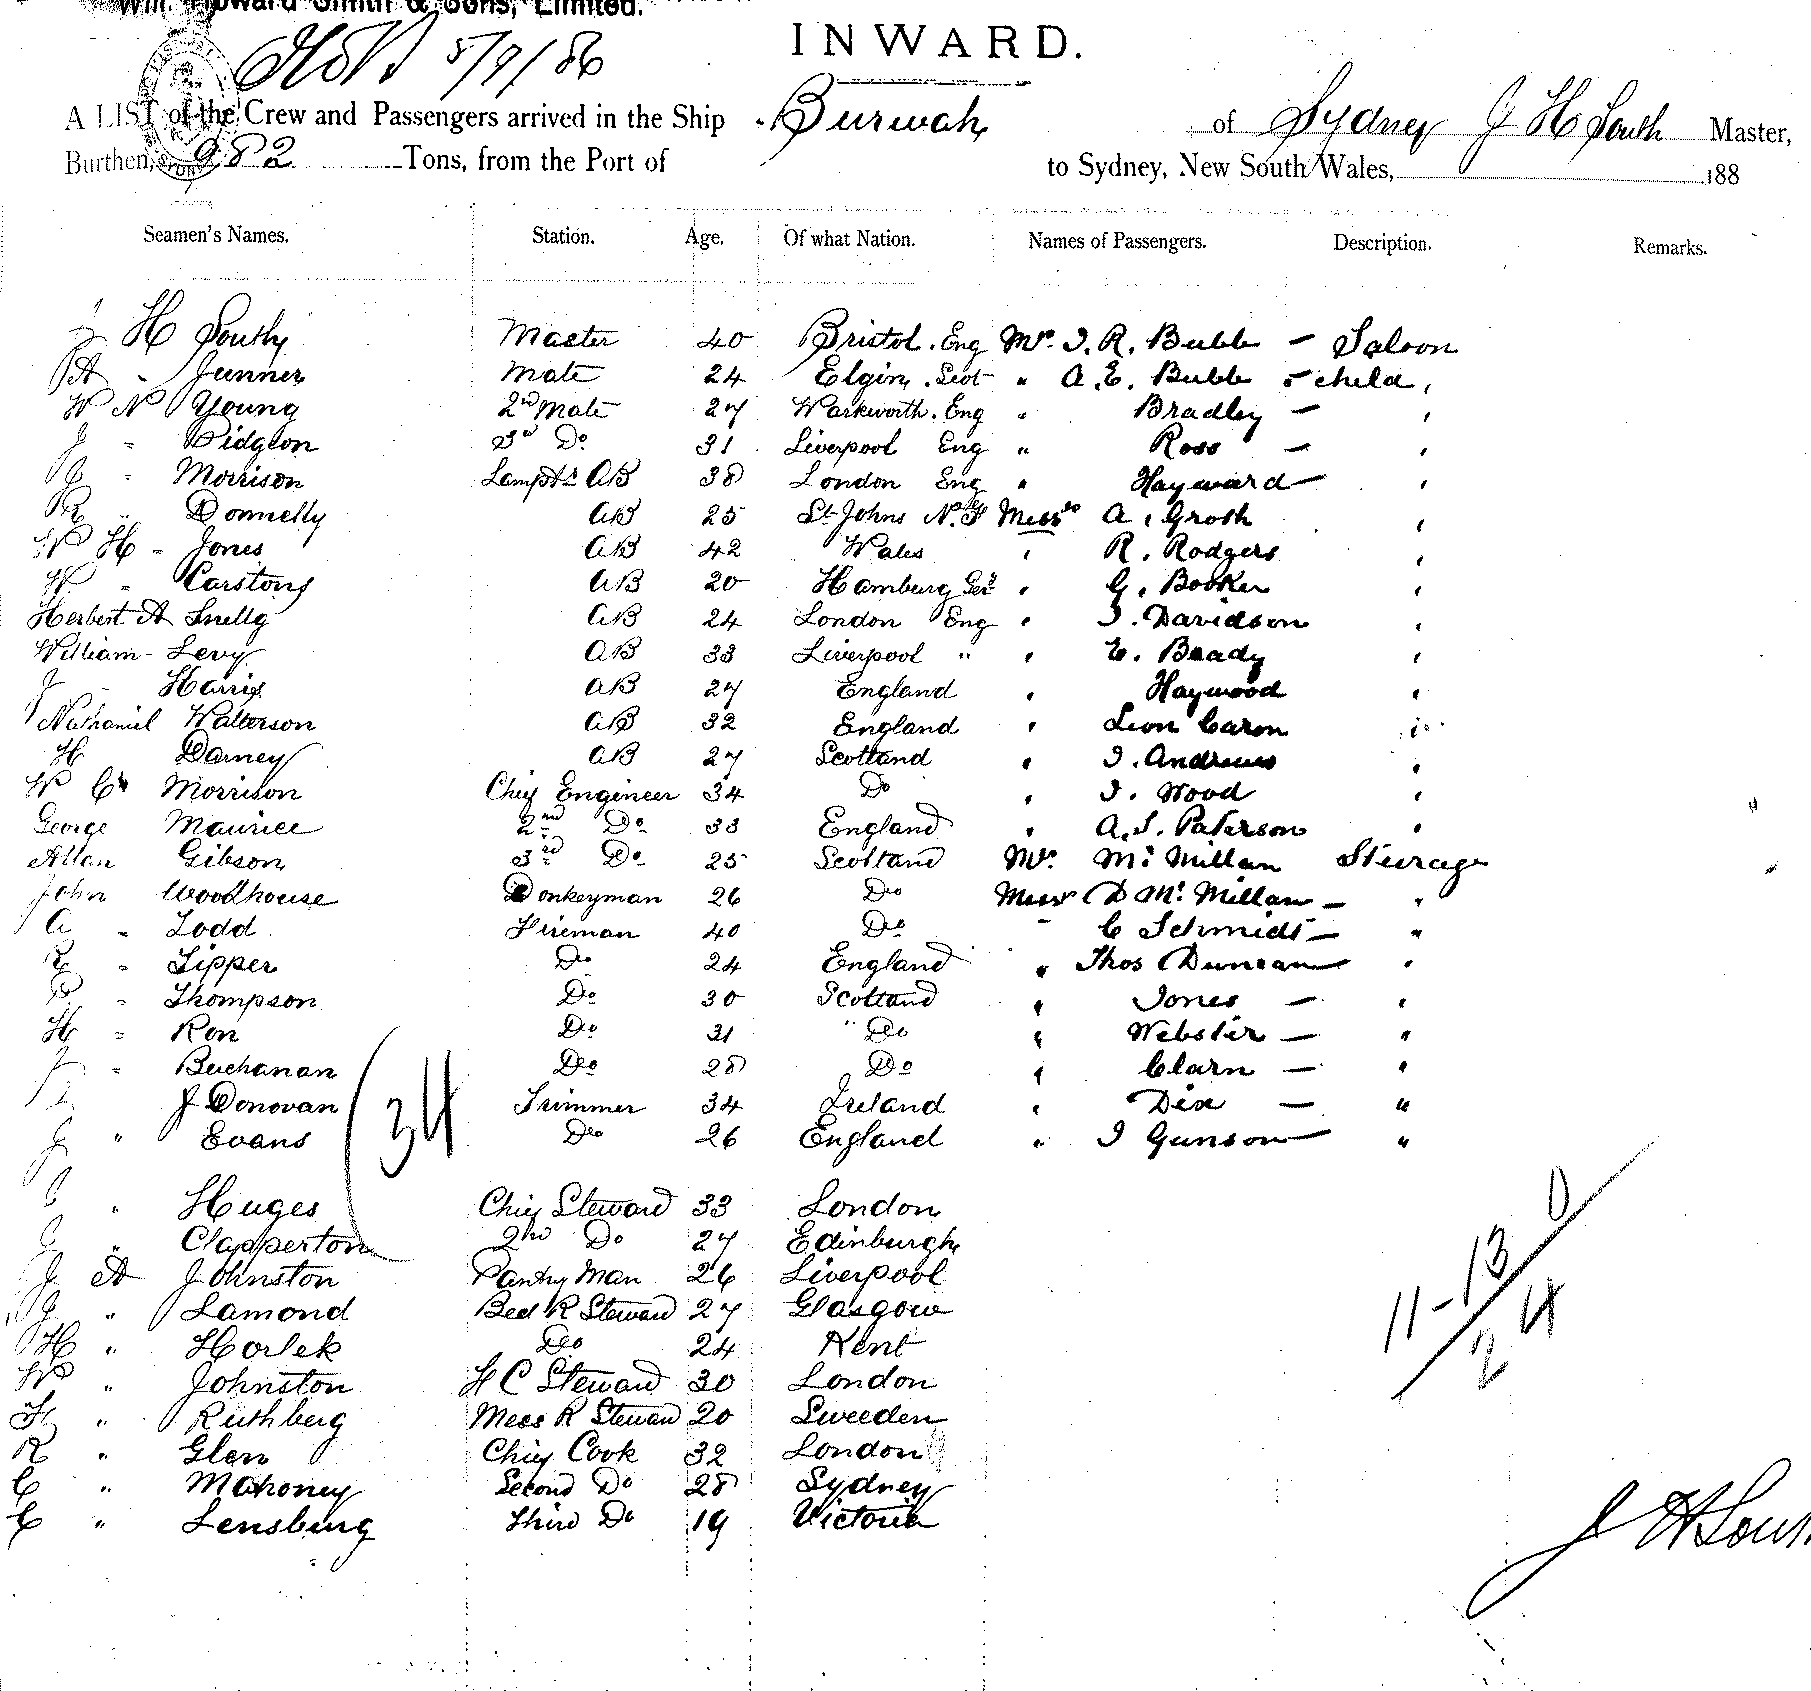 Wm. Howard Smith & Sons, Limited.
INWARD.
5/9/86
A LIST of the Crew and Passengers arrived in the Ship Burwah of Sydney J H South Master,
Burthen, 982 Tons, from the Port of to Sydney, New South Wales, 188
Seamen's Names. Station. Age. Of what Nation. Names of Passengers. Description. Remarks.
J H South Master 40 Bristol. Eng Mr. J. R. Bubb — Saloon
A " Junner Mate 24 Elgin. Scot " A. E. Bubb - child "
W N Young 2nd Mate 27 Warkworth. Eng " Bradley — "
J " Pidgeon 3rd Do 31 Liverpool Eng " Ross — "
J " Morrison Lamptr AB 38 London Eng " Hayward — "
R " Donnelly AB 25 St Johns N.F Messrs A. Groth "
W H " Jones AB 42 Wales " R. Rodgers "
W " Carstons AB 20 Hamburg Ger " G. Booker "
Herbert A Snellg AB 24 London Eng " J. Davidson "
William - Levy AB 33 Liverpool " " E. Beady "
J Harris AB 27 England " Haywood "
Nathaniel Watterson AB 32 England " Leon Caron "
H Darney AB 27 Scotland " J. Andrews "
W Morrison Chief Engineer 34 Do " J. Wood "
George Maurice 2nd Do 33 England " A. J. Paterson "
Allan Gibson 3rd Do 25 Scotland Mr. Mc Millan Steerage
John Woodhouse Donkeyman 26 Do Messr D Mc Millan — "
A " Todd Fireman 40 Do " C Schmidt — "
R " Tipper Do 24 England " Thos Duncan — "
P " Thompson Do 30 Scotland " Jones — "
H " Ron Do 31 " Do " Webster — "
J " Buchanan Do 28 Do " Clarn — "
J Donovan Trimmer 34 Ireland " Dix — "
J " Evans Do 26 England " J Gunson — "
34
" Huges Chief Steward 33 London
J " Clapperton 2nd Do 27 Edinburgh
J A Johnston Pantry Man 26 Liverpool
J " Lamond Bed R Steward 27 Glasgow
H " Horlek Do 24 Kent
W " Johnston F C Steward 30 London
F " Ruthberg Mess R Steward 20 Sweeden
R " Glen Chief Cook 32 London
C " Mahoney Second Do 28 Sydney
C " Lensburg Third Do 19 Victoria
11-13 0
24
J H South